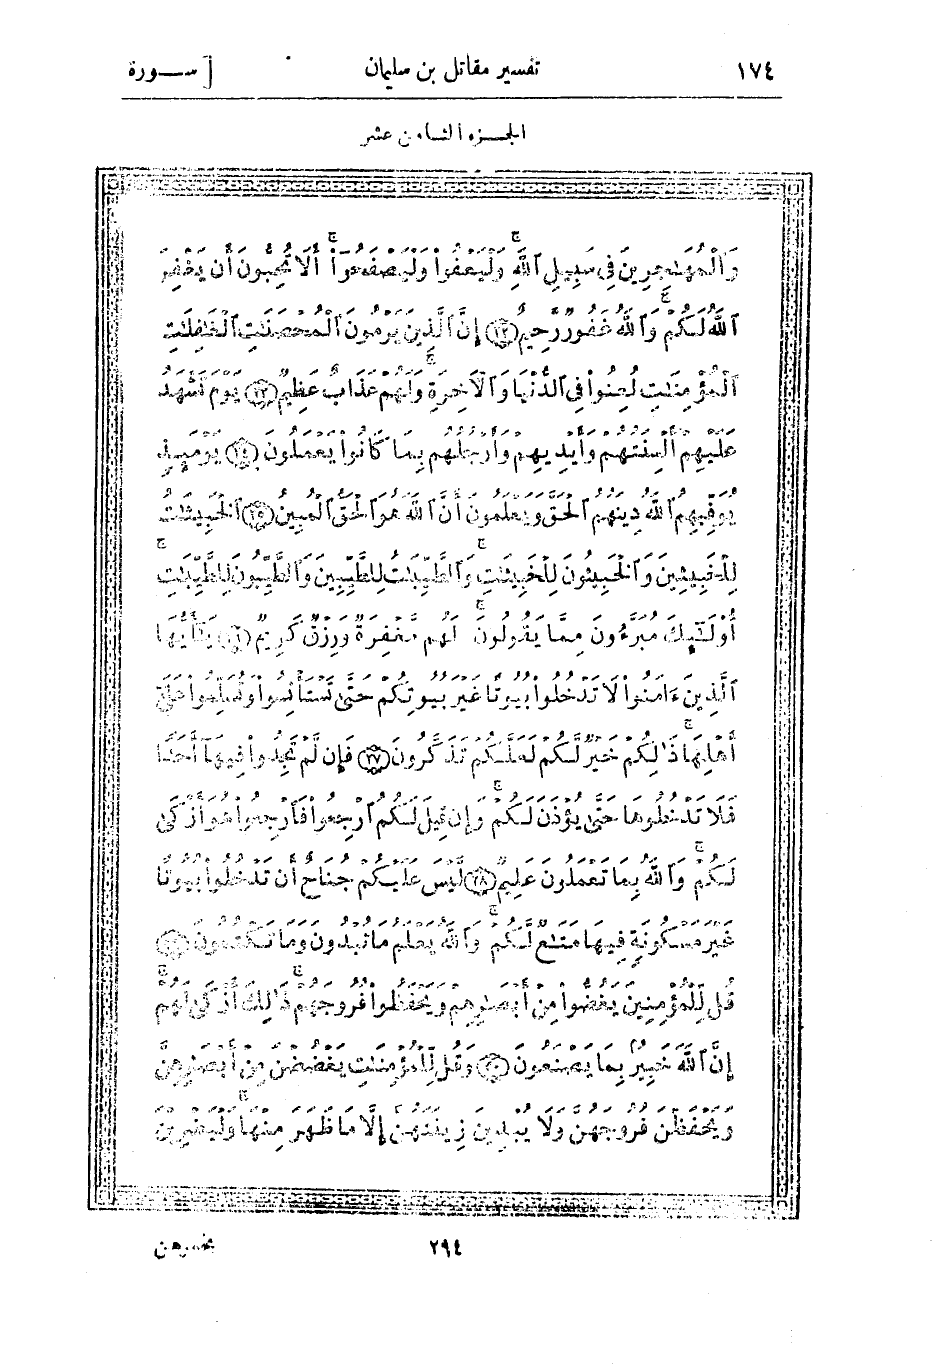 ١٧٤ تفسير مقاتل بن سليمان [ ســورة
الجــزء الثامن عشر
وَٱلْمُهَٰجِرِينَ فِى سَبِيلِ ٱللَّهِ ۖ وَلْيَعْفُوا۟ وَلْيَصْفَحُوٓا۟ ۗ أَلَا تُحِبُّونَ أَن يَغْفِرَ
ٱللَّهُ لَكُمْ ۗ وَٱللَّهُ غَفُورٌ رَّحِيمٌ ﴿٢٢﴾ إِنَّ ٱلَّذِينَ يَرْمُونَ ٱلْمُحْصَنَٰتِ ٱلْغَٰفِلَٰتِ
ٱلْمُؤْمِنَٰتِ لُعِنُوا۟ فِى ٱلدُّنْيَا وَٱلْـَٔاخِرَةِ وَلَهُمْ عَذَابٌ عَظِيمٌ ﴿٢٣﴾ يَوْمَ تَشْهَدُ
عَلَيْهِمْ أَلْسِنَتُهُمْ وَأَيْدِيهِمْ وَأَرْجُلُهُم بِمَا كَانُوا۟ يَعْمَلُونَ ﴿٢٤﴾ يَوْمَئِذٍ
يُوَفِّيهِمُ ٱللَّهُ دِينَهُمُ ٱلْحَقَّ وَيَعْلَمُونَ أَنَّ ٱللَّهَ هُوَ ٱلْحَقُّ ٱلْمُبِينُ ﴿٢٥﴾ ٱلْخَبِيثَٰتُ
لِلْخَبِيثِينَ وَٱلْخَبِيثُونَ لِلْخَبِيثَٰتِ ۖ وَٱلطَّيِّبَٰتُ لِلطَّيِّبِينَ وَٱلطَّيِّبُونَ لِلطَّيِّبَٰتِ ۚ
أُو۟لَٰٓئِكَ مُبَرَّءُونَ مِمَّا يَقُولُونَ ۖ لَهُم مَّغْفِرَةٌ وَرِزْقٌ كَرِيمٌ ﴿٢٦﴾ يَٰٓأَيُّهَا
ٱلَّذِينَ ءَامَنُوا۟ لَا تَدْخُلُوا۟ بُيُوتًا غَيْرَ بُيُوتِكُمْ حَتَّىٰ تَسْتَأْنِسُوا۟ وَتُسَلِّمُوا۟ عَلَىٰٓ
أَهْلِهَا ۚ ذَٰلِكُمْ خَيْرٌ لَّكُمْ لَعَلَّكُمْ تَذَكَّرُونَ ﴿٢٧﴾ فَإِن لَّمْ تَجِدُوا۟ فِيهَآ أَحَدًا
فَلَا تَدْخُلُوهَا حَتَّىٰ يُؤْذَنَ لَكُمْ ۖ وَإِن قِيلَ لَكُمُ ٱرْجِعُوا۟ فَٱرْجِعُوا۟ هُوَ أَزْكَىٰ
لَكُمْ ۚ وَٱللَّهُ بِمَا تَعْمَلُونَ عَلِيمٌ ﴿٢٨﴾ لَّيْسَ عَلَيْكُمْ جُنَاحٌ أَن تَدْخُلُوا۟ بُيُوتًا
غَيْرَ مَسْكُونَةٍ فِيهَا مَتَٰعٌ لَّكُمْ ۚ وَٱللَّهُ يَعْلَمُ مَا تُبْدُونَ وَمَا تَكْتُمُونَ ﴿٢٩﴾
قُل لِّلْمُؤْمِنِينَ يَغُضُّوا۟ مِنْ أَبْصَٰرِهِمْ وَيَحْفَظُوا۟ فُرُوجَهُمْ ۚ ذَٰلِكَ أَزْكَىٰ لَهُمْ ۗ
إِنَّ ٱللَّهَ خَبِيرٌۢ بِمَا يَصْنَعُونَ ﴿٣٠﴾ وَقُل لِّلْمُؤْمِنَٰتِ يَغْضُضْنَ مِنْ أَبْصَٰرِهِنَّ
وَيَحْفَظْنَ فُرُوجَهُنَّ وَلَا يُبْدِينَ زِينَتَهُنَّ إِلَّا مَا ظَهَرَ مِنْهَا ۖ وَلْيَضْرِبْنَ
٢٩٤ بخمرهن